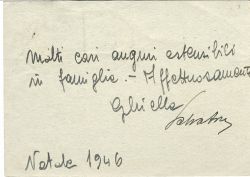 Molti cari auguri estensibili
in famiglia. - Affettuosamente
Natale 1946